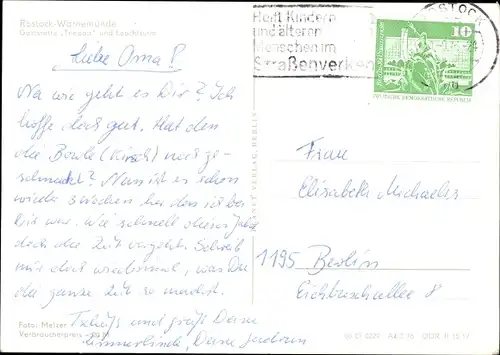 Rostock-Warnemünde
Gaststätte „Teepott" und Leuchtturm
Liebe Oma P
Na wie geht es Dir? Ich
hoffe doch gut. Hat den
die Bowle (Kirsch) noch ge-
schmeckt? Nun ist es schon
wieder Wochen her den ich bei
Dir war. Wie schnell dieses Jahr
doch die Zeit vergeht. Schreib
mir doch wiedermal, was Du
die ganze Zeit so machst.
Tschüß und grüß Deine
Deine
Foto: Melzer
Verbraucherpreis
PLANET VERLAG BERLIN
ROSTOCK
Helft Kindern
und älteren
Menschen im
Straßenverkehr
10
DEUTSCHE DEMOKRATISCHE REPUBLIK
Frau
Elisabeth Michaelis
1195 Berlin
Eichbuschallee 8